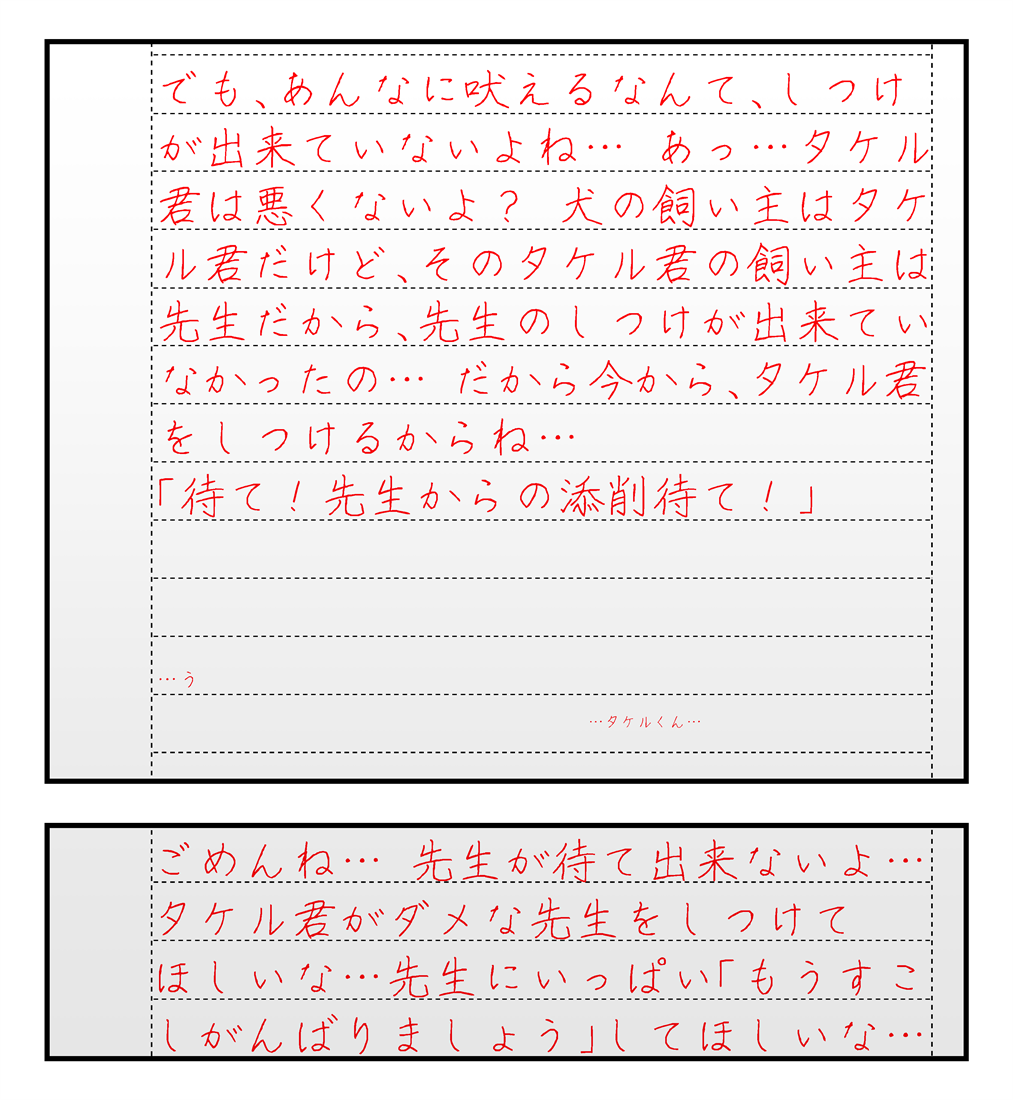 でも、あんなに吠えるなんて、しつけ
が出来ていないよね… あっ…タケル
君は悪くないよ？ 犬の飼い主はタケ
ル君だけど、そのタケル君の飼い主は
先生だから、先生のしつけが出来てい
なかったの… だから今から、タケル君
をしつけるからね…
「待て！先生からの添削待て！」
…う
…タケルくん…
ごめんね… 先生が待て出来ないよ…
タケル君がダメな先生をしつけて
ほしいな…先生にいっぱい「もうすこ
しがんばりましょう」してほしいな…